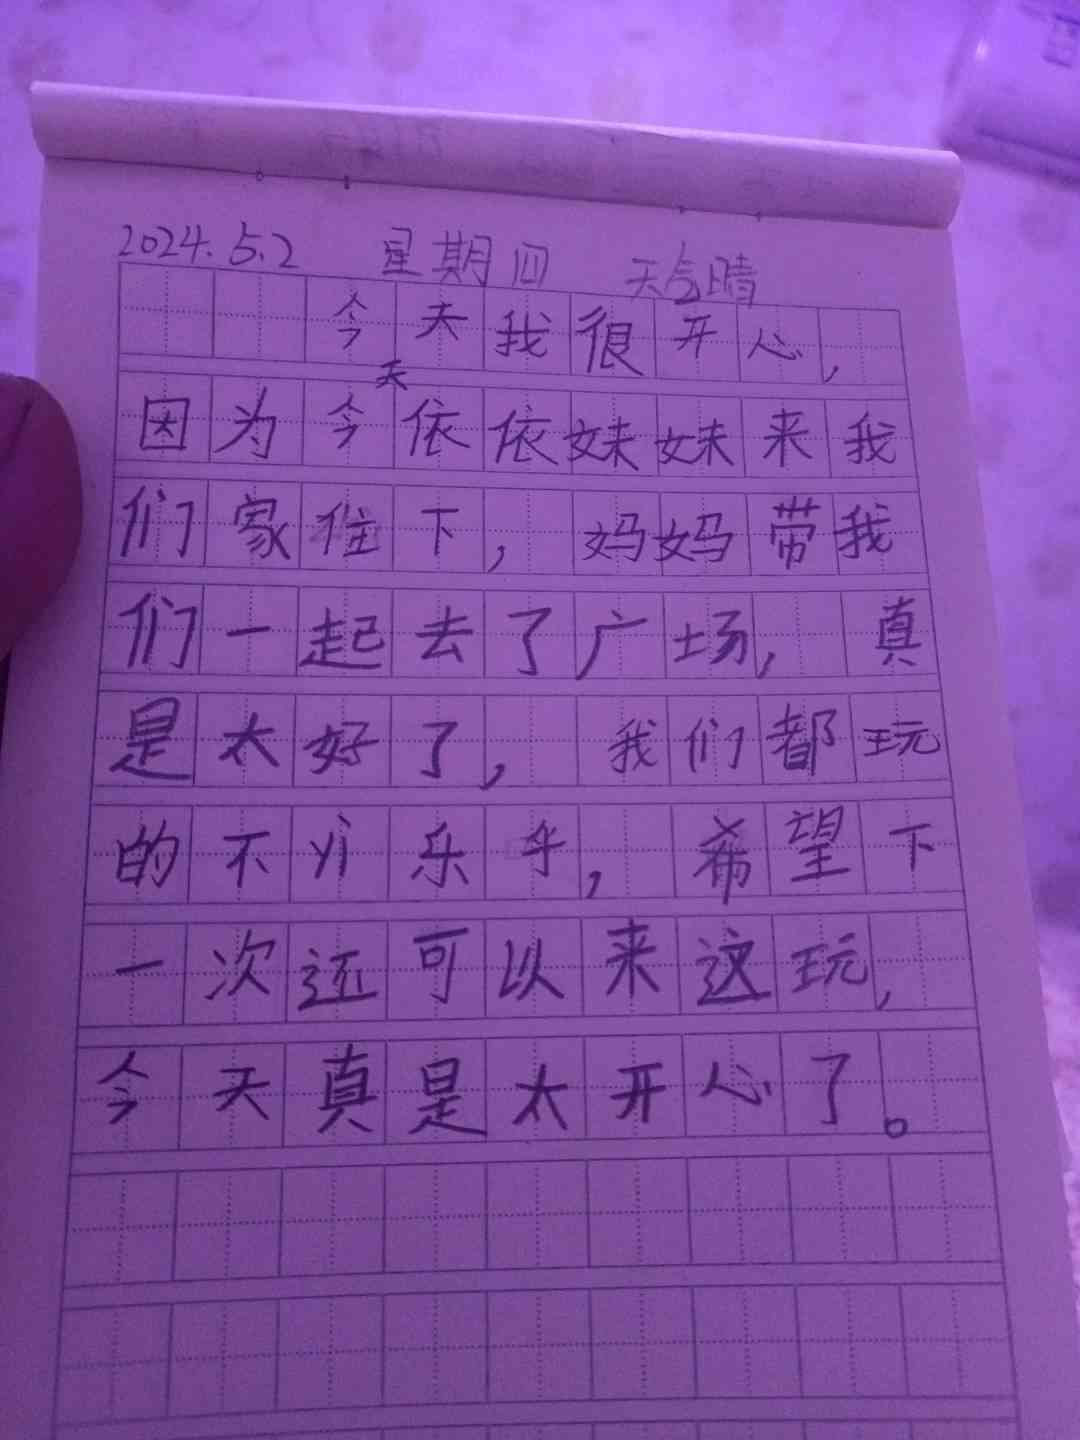 2024.5.2 星期四 天气晴
今天我很开心,
因为今天依依妹妹来我
们家住下,妈妈带我
们一起去了广场,真
是太好了,我们都玩
的不亦乐乎,希望下
一次还可以来这玩,
今天真是太开心了。